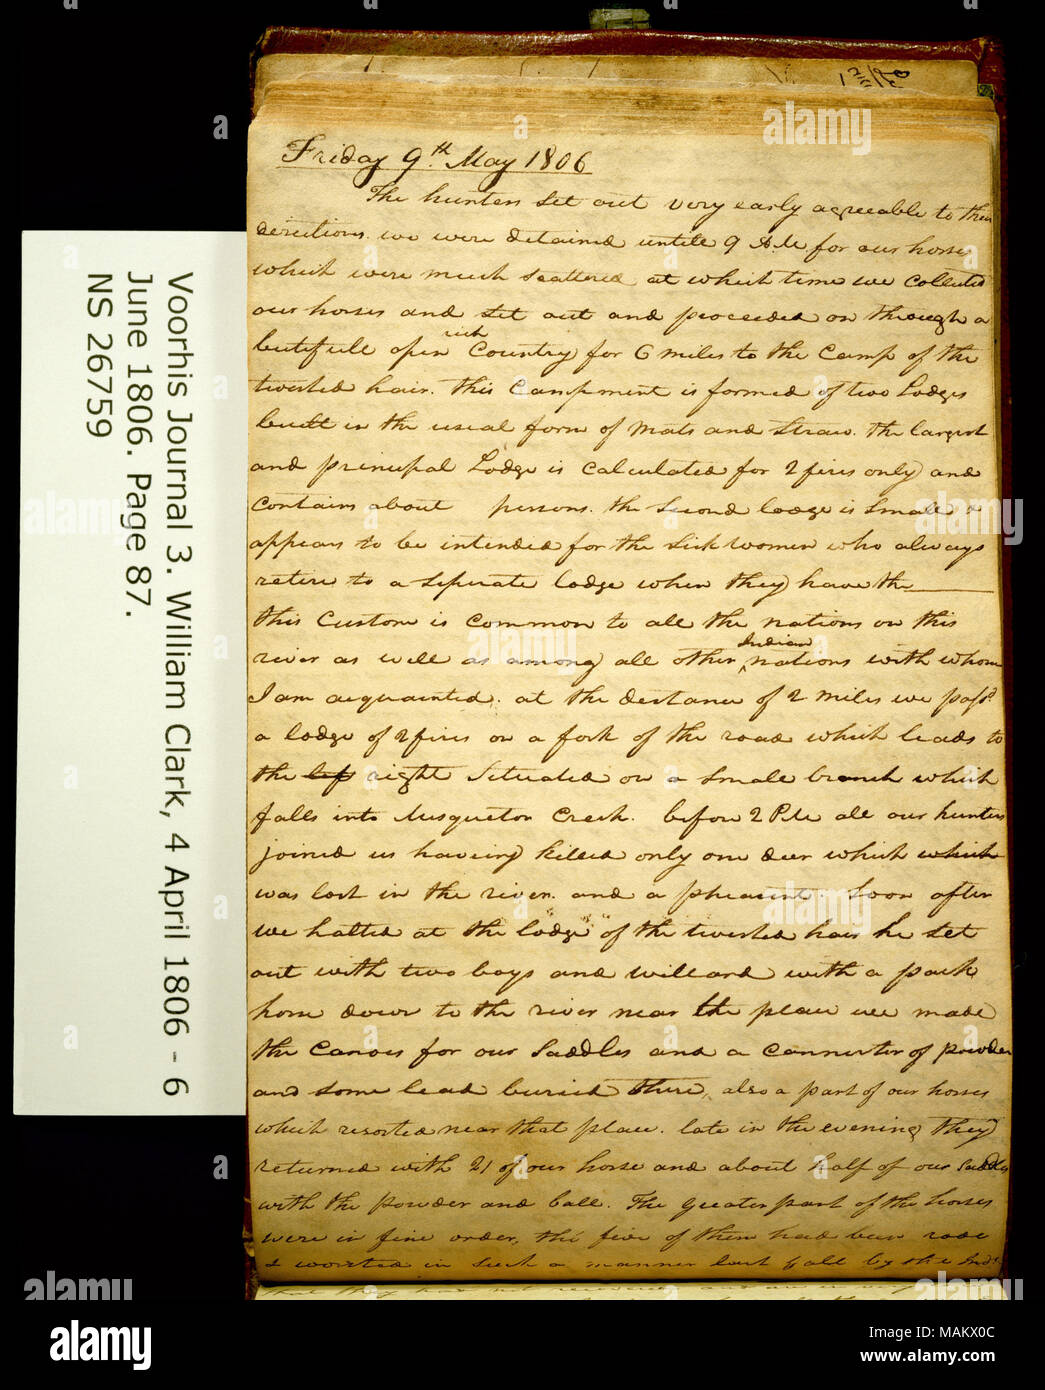 Friday 9th May 1806
The hunters Set out very early agreeable to their
derections. we were detained untill 9 A.M for our horses
which were much Scattered at which time we Collected
our horses and Set out and proceeded on through a
butifull open rich Country for 6 miles to the Camp of the
twisted hair. this Campment is formed of two Lodges
built in the usial form of mats and Straw. the largest
and principal Lodge is Calculated for 2 fires only and
Contains about persons. the Second lodge is Small &
appears to be intended for the Sick women who always
retire to a Seperate lodge when they have the
this Custom is Common to all the nations on this
river as well as among all other Indian nations with whom
I am acquainted. at the distance of 2 miles we passd.
a lodge of 2 fires on a fork of the road which leads to
the lef right Situated on a Small branch which
falls into Musquetor Creek. before 2 P.M all our hunters
joined us haveing killed only one deer which which
was lost in the river. and a pheasent. Soon after
we halted at the lodge of the twisted hair he Set
out with two boys and Willard with a pack
horse down to the river near the place we made
the Canoes for our Saddles and a Cannister of powder
and Some lead buried there, also a part of our horses
which resorted near that place. late in the evening they
returned with 21 of our horse and about half of our Saddles
with the powder and ball. The greater part of the horses
were in fine order, tho' five of them had been rode
& worsted in Such a manner last fall by the Inds.
that they had not recovered and are in very
Voorhis Journal 3. William Clark, 4 April 1806 - 6
June 1806. Page 87.
NS 26759
alamy
Image ID: MAKX0C
www.alamy.com